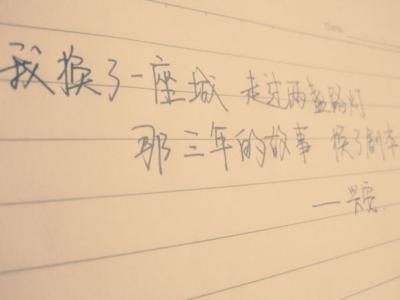 我换了一座城 走过两盏路灯
那三年的故事 换了剧本